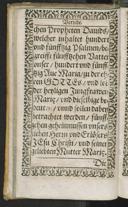 Vorrede.
chen Propheten Dauids,
welcher inhaltet hundert
vnd fünfftzig Psalmen/be-
greifft fünfftzehen Vatter
vnser/hundert vnd fünff-
tzig Aue Maria/zu der eh-
ren GOTTES/vnd
der heyligen Jungfrawen
Mariæ/vnd dieselbige be-
tent/vnd seien dabey
betrachtet werden/fünff-
zehen geheimnussen vnsers
lieben Herrn vnd
JEsu Christi/vnd seiner
geliebten Mutter Mariæ.